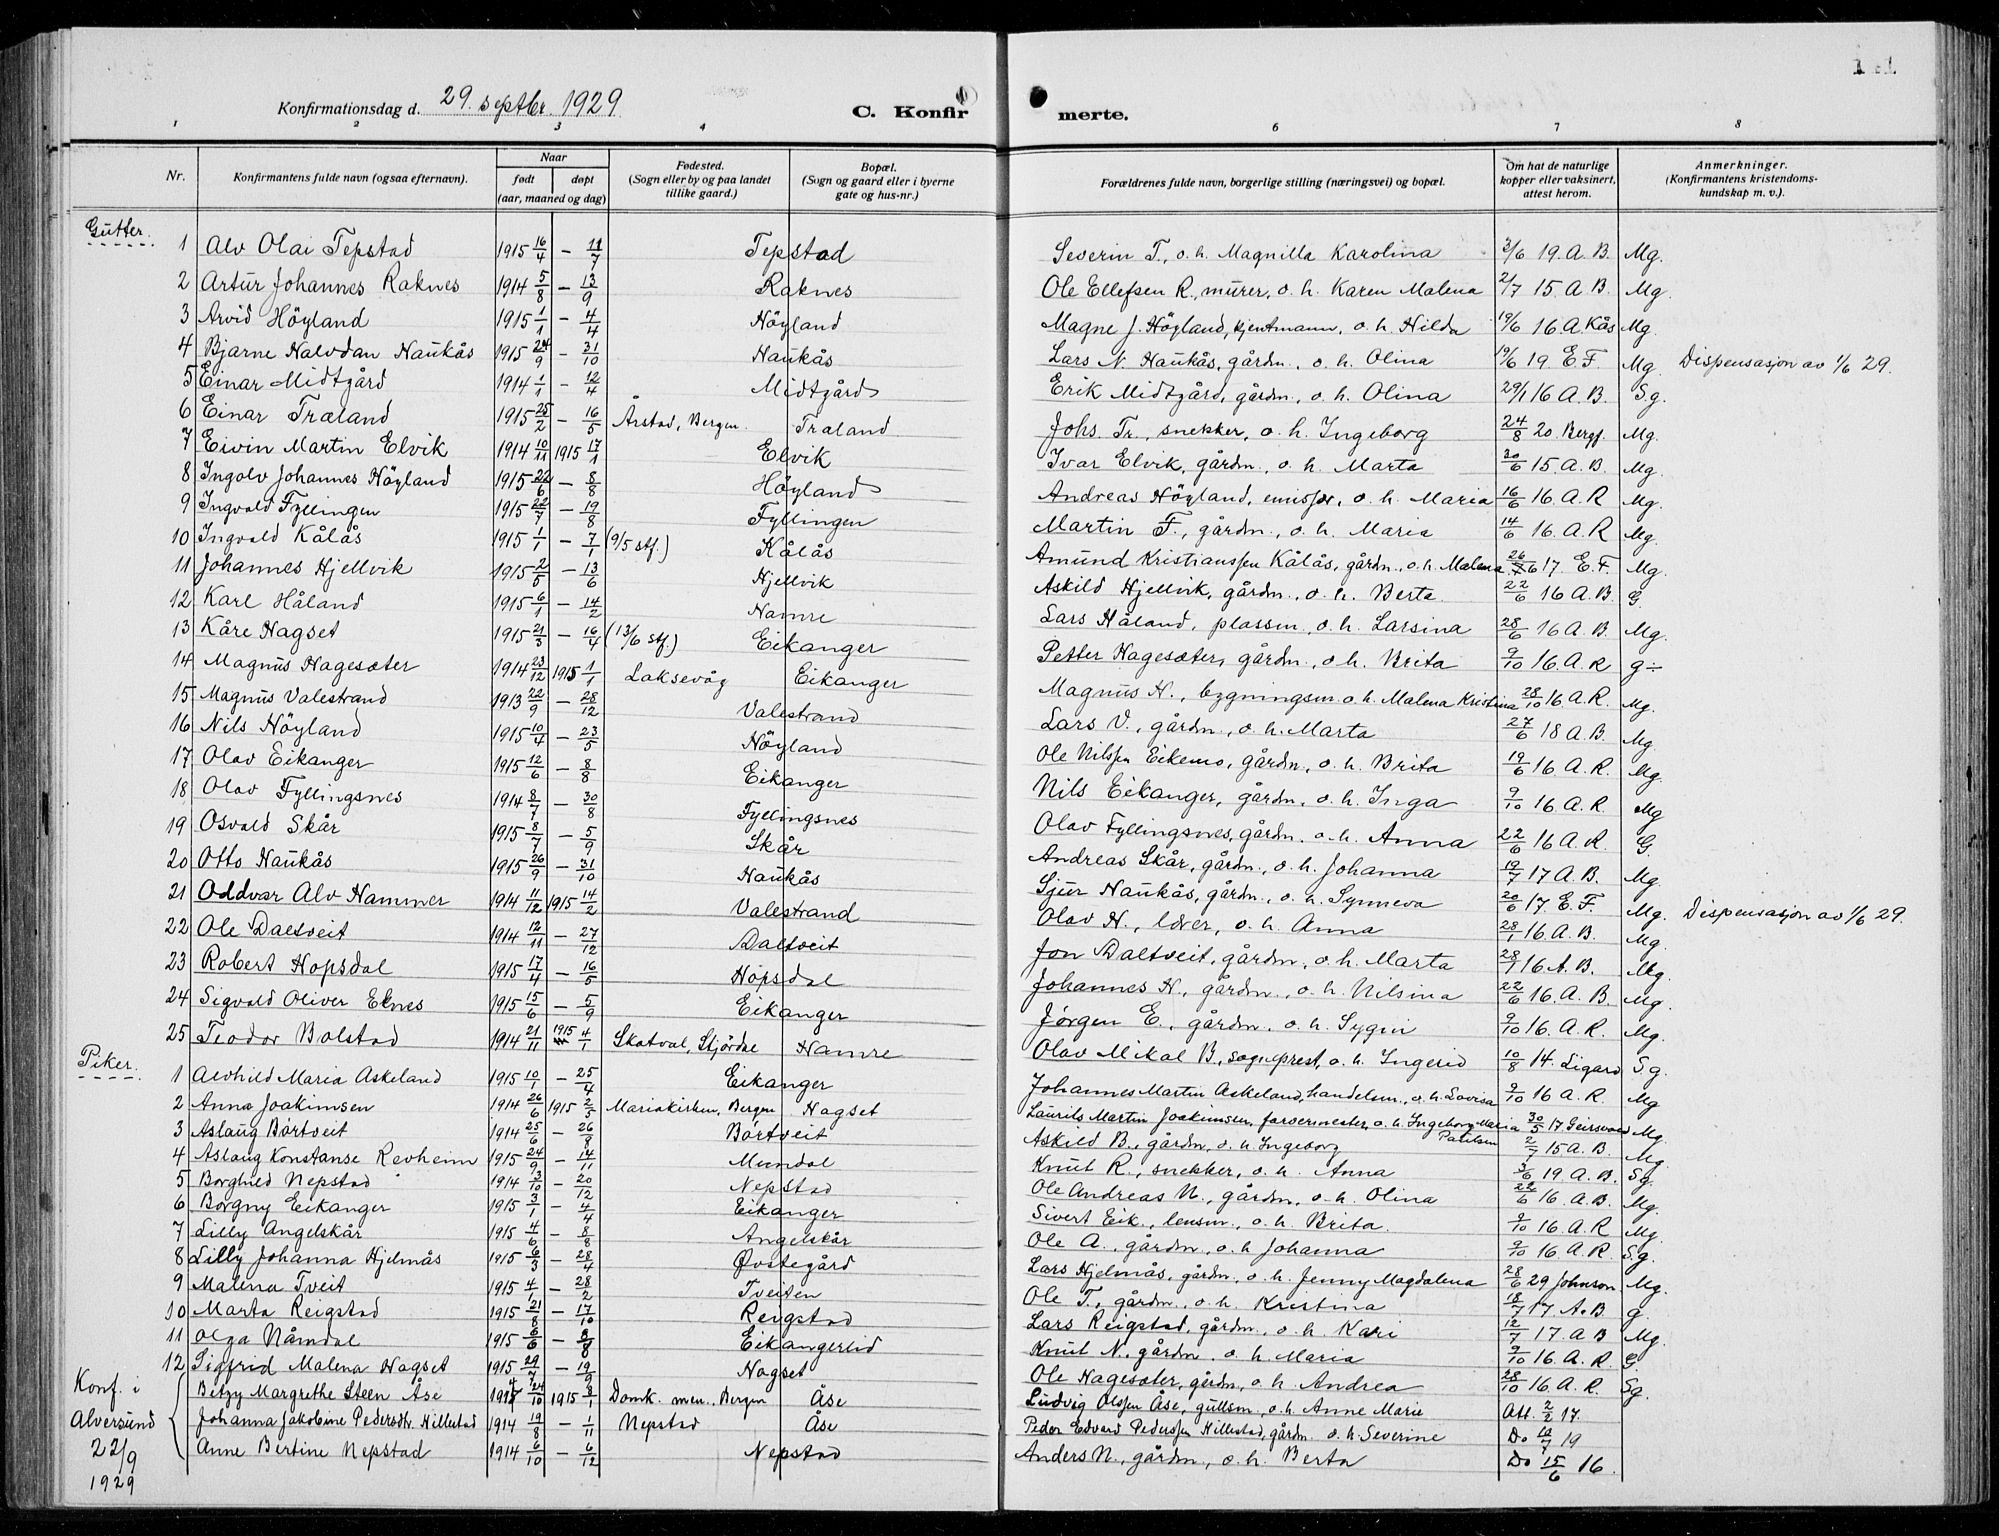 Konfirmationsdag d. 29. septbr. 1929. C. Konfirmerte.
1 2 3 4 6 7 8
Nr. Konfirmantens fulde navn (ogsaa efternavn). Naar født døpt (aar, maaned og dag) Fødested. (Sogn eller by og paa landet tillike gaard.) Bopæl. (Sogn og gaard eller i byerne gate og hus-nr.) Forældrenes fulde navn, borgerlige stilling (næringsvei) og bopæl. Om hat de naturlige kopper eller vaksinert, attest herom. Anmerkninger. (Konfirmantens kristendoms-kundskap m. v.).
Gutter.
1 Alv Olai Tepstad 1915 16/4 – 11/7 Tepstad Severin T., o. h. Magnilla Karolina 3/6 19. A. B. Mg.
2 Artur Johannes Raknes 1914 5/8 – 13/9 Raknes Ole Ellefsen R., murer, o. h. Karen Malena 2/7 15. A. B. Mg.
3 Arvid Höyland 1915 1/1 – 4/4 Höyland Magne J. Höyland, kjentmann, o. h. Hilda 19/6 16. A Kås Mg.
4 Bjarne Halvdan Haukås 1915 24/9 – 31/10 Haukås Lars N. Haukås, gårdm., o. h. Olina 19/6 19 E F Mg. Dispensasjon av 1/6 29.
5 Einar Midtgård 1914 1/1 – 12/4 Midtgård Erik Midtgård, gårdm., o. h. Olina 29/1 16 A. B. Sg.
6 Einar Træland 1915 25/2 – 16/5 Årstad, Bergen. Træland Johs. Tr., snekker, o. h. Ingeborg 24/8 20. Bergf. Mg.
7 Eivin Martin Elvik 1914 10/11 1915 17/1 Elvik Ivar Elvik, gårdm., o. h. Marta 30/6 15. A. B. Mg.
8 Ingolv Johannes Höyland 1915 22/6 – 8/8 Höyland Andreas Höyland, emissær, o. h. Maria 16/6 16. A. R Mg.
9 Ingvald Fyllingen 1915 22/7 – 19/8 Fyllingen Martin F., gårdm., o. h. Maria 14/6 16. A. R Mg.
10 Ingvald Kålås 1915 1/1 – 7/1 (9/5 stf.) Kålås Amund Kristianssen Kålås, gårdm., o. h. Malena 26/6 17. E. F. Mg.
11 Johannes Hjellvik 1915 2/5 – 13/6 Hjellvik Askild Hjellvik, gårdm., o. h. Berta 22/6 16 A. B. G.
12 Karl Håland 1915 6/1 – 14/2 Hamre Lars Håland, plassm., o. h. Larsina 28/6 16 A. B. Mg.
13 Kåre Hagset 1915 21/3 – 16/4 (13/6 stf.) Eikanger Petter Hagesæter, gårdm., o h. Brita 9/10 16. A. R g÷
14 Magnus Hagesæter 1914 23/12 1915 1/1 Laksevåg Eikanger Magnus H., bygningsm o. h. Malena Kristina 28/10 16 A. R. Mg.
15 Magnus Valestrand 1913 22/9 – 28/12 Valestrand Lars V., gårdm., o. h. Marta 27/6 18 A. B. Mg.
16 Nils Höyland 1915 10/4 – 23/5 Höyland Ole Nilssen Eikemo, gårdm., o. h. Brita 19/6 16. A. R. Mg.
17 Olav Eikanger 1915 12/6 – 8/8 Eikanger Nils Eikanger, gårdm., o. h. Inga 9/10 16 A. R. Mg
18 Olav Fyllingsnes 1914 8/7 – 30/8 Fyllingsnes Olav Fyllingsnes, gårdm. o. h. Anna 22/6 16 A. R. G.
19 Osvald Skår 1915 8/7 – 5/9 Skår Andreas Skår, gårdm., o. h. Johanna 19/7 17 A. B. Mg.
20 Otto Haukås 1915 26/9 – 31/10 Haukås Sjur Haukås, gårdm., o. h. Synneva 20/6 17. E. F. Mg. Dispensasjon av 1/6 29.
21 Oddvar Alv Hammer 1914 11/12 1915 14/2 Valestrand Olav H., lærer, o. h. Anna 28/1 16. A. B. Mg.
22 Ole Daltveit 1914 12/11 – 27/12 Daltveit Jon Daltveit, gårdm., o. h. Marta 28/7 16 A. B. Mg.
23 Robert Hopsdal 1915 17/4 – 16/5 Hopsdal Johannes H., gårdm., o. h. Nilsina 22/6 16. A. B. Mg.
24 Sigvald Oliver Eknes 1915 15/6 – 5/9 Eikanger Jørgen E., gårdm., o. h. Sygni 9/10 16. A. R. Mg.
25 Teodor Bolstad 1914 21/11 1915 4/1 Skatval, Stjördal Hamre Olav Mikal B., sogneprest, o. h. Ingerid 10/8 14. Ligard Sg.
Piker.
1 Alvhild Maria Askeland 1915 10/1 – 25/4 Eikanger Johannes Martin Askeland, handelsm., o. h. Lovisa 9/10 16 A. R. Mg
2 Anna Joakimsen 1914 26/6 1915 2/5 Mariakirken, Bergen Hagset Laurits Martin Joakimsen, farvermester, o. h. Ingeborg Maria Paulsen 30/5 17 Geirsvold Mg.
3 Aslaug Börtveit 1914 25/6 – 26/8 Börtveit Askild B., gårdm., o. h Ingeborg 2/7 15 A. B. Mg.
4 Aslaug Konstanse Revheim 1915 24/9 – 14/11 Mundal Knut R., snekker, o. h. Anna 3/6 19 A. B. Sg.
5 Borghild Nepstad 1914 3/10 – 20/12 Nepstad Ole Andreas N., gårdm., o. h. Olina 22/6 16. A. B. Mg.
6 Borgny Eikanger 1915 3/1 – 4/4 Eikanger Sivert Eik., lensm., o. h. Brita. 9/10 16. A. R Mg.
7 Lilly Angelskår 1915 4/6 – 8/8 Angelskår Ole A., gårdm., o. h Johanna 9/10 16 A. R. Sg.
8 Lilly Johanna Hjelmås 1915 6/3 – 28/4 Øvstegård Lars Hjelmås, gårdm., o. h. Jenny Magdalena 28/6 29 Johnson. Mg.
9 Malena Tveit 1915 4/1 – 28/2 Tveiten Ole T., gårdm., o. h. Kristina 18/7 17 A. B. g.
10 Marta Reigstad 1915 21/8 – 17/10 Reigstad Lars Reigstad, gårdm., o. h. Kari 12/7 17. A B Mg.
11 Olga Nåmdal 1915 6/6 – 8/8 Eikangerlid Knut N., gårdm. o. h. Maria 9/10 16. A. R. G.
12 Sigfrid Malena Hagset 1915 29/7 – 19/9 Hagset Ole Hagesæter, gårdm., o. h. Andrea 28/10 16. A. R. Sg.
Konf. i Alversund 22/9 1929
Betzy Margrethe Steen Åse 1914 24/10 1915 8/1 Domk. men., Bergen Åse Ludvig Olssen Åse, gullsm., o. h. Anne Marie Att. 2/2 17.
Johanna Jakobine Pedersdtr. Hillestad 1914 19/8 – 1/11 Nepstad Åse Peder Edvard Pederssen Hillestad, gårdm. o. h. Severine Do 10/7 19
Anne Bertine Nepstad 1914 6/10 – 6/12 Nepstad Anders N., gårdm., o. h. Berta Do 15/6 16.